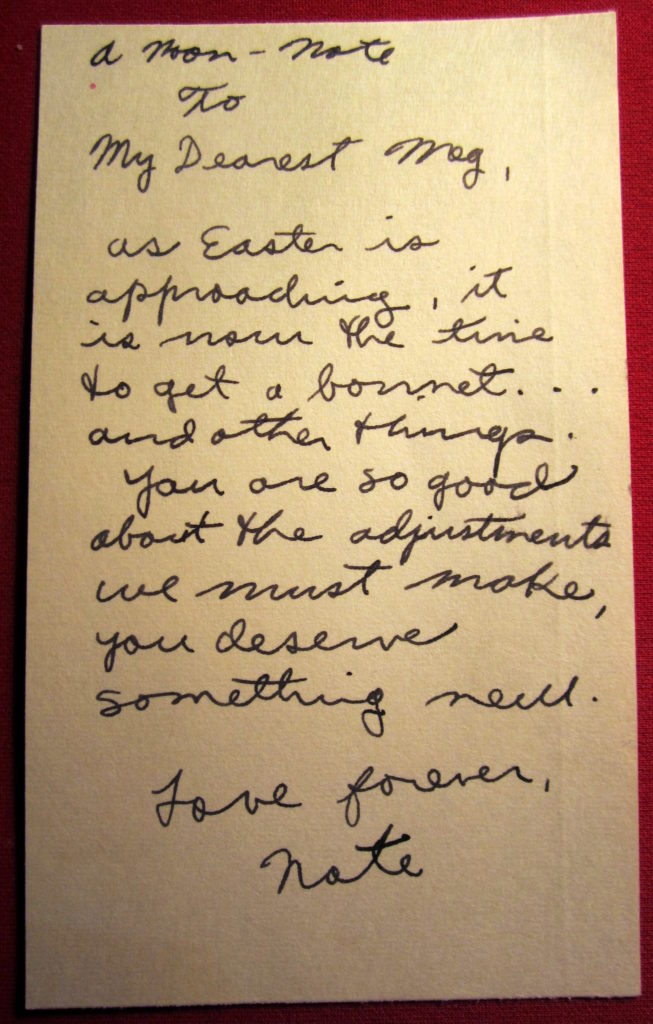 a Moon-Note
To
My Dearest Meg,
as Easter is
approaching, it
is now the time
to get a bonnet...
and other things.
You are so good
about the adjustments
we must make,
you deserve
something new.
Love forever,
Nate